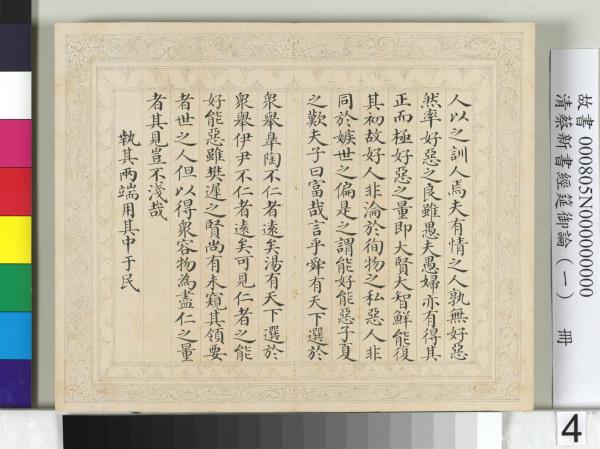 人以之訓人焉夫有情之人孰無好惡
然率好惡之良雖愚夫愚婦亦有得其
正而極好惡之量即大賢大智鮮能復
其初故好人非淪於徇物之私惡人非
同於嫉世之偏是之謂能好能惡子夏
之歎夫子曰富哉言乎舜有天下選於
衆舉臯陶不仁者遠矣湯有天下選於
衆舉伊尹不仁者遠矣可見仁者之能
好能惡雖樊遲之賢尚有未窺其領要
者世之人但以得衆容物為盡仁之量
者其見豈不淺哉
執其兩端用其中于民
故書 000805N000000000
清蔡新書經筵御論(一) 冊
4